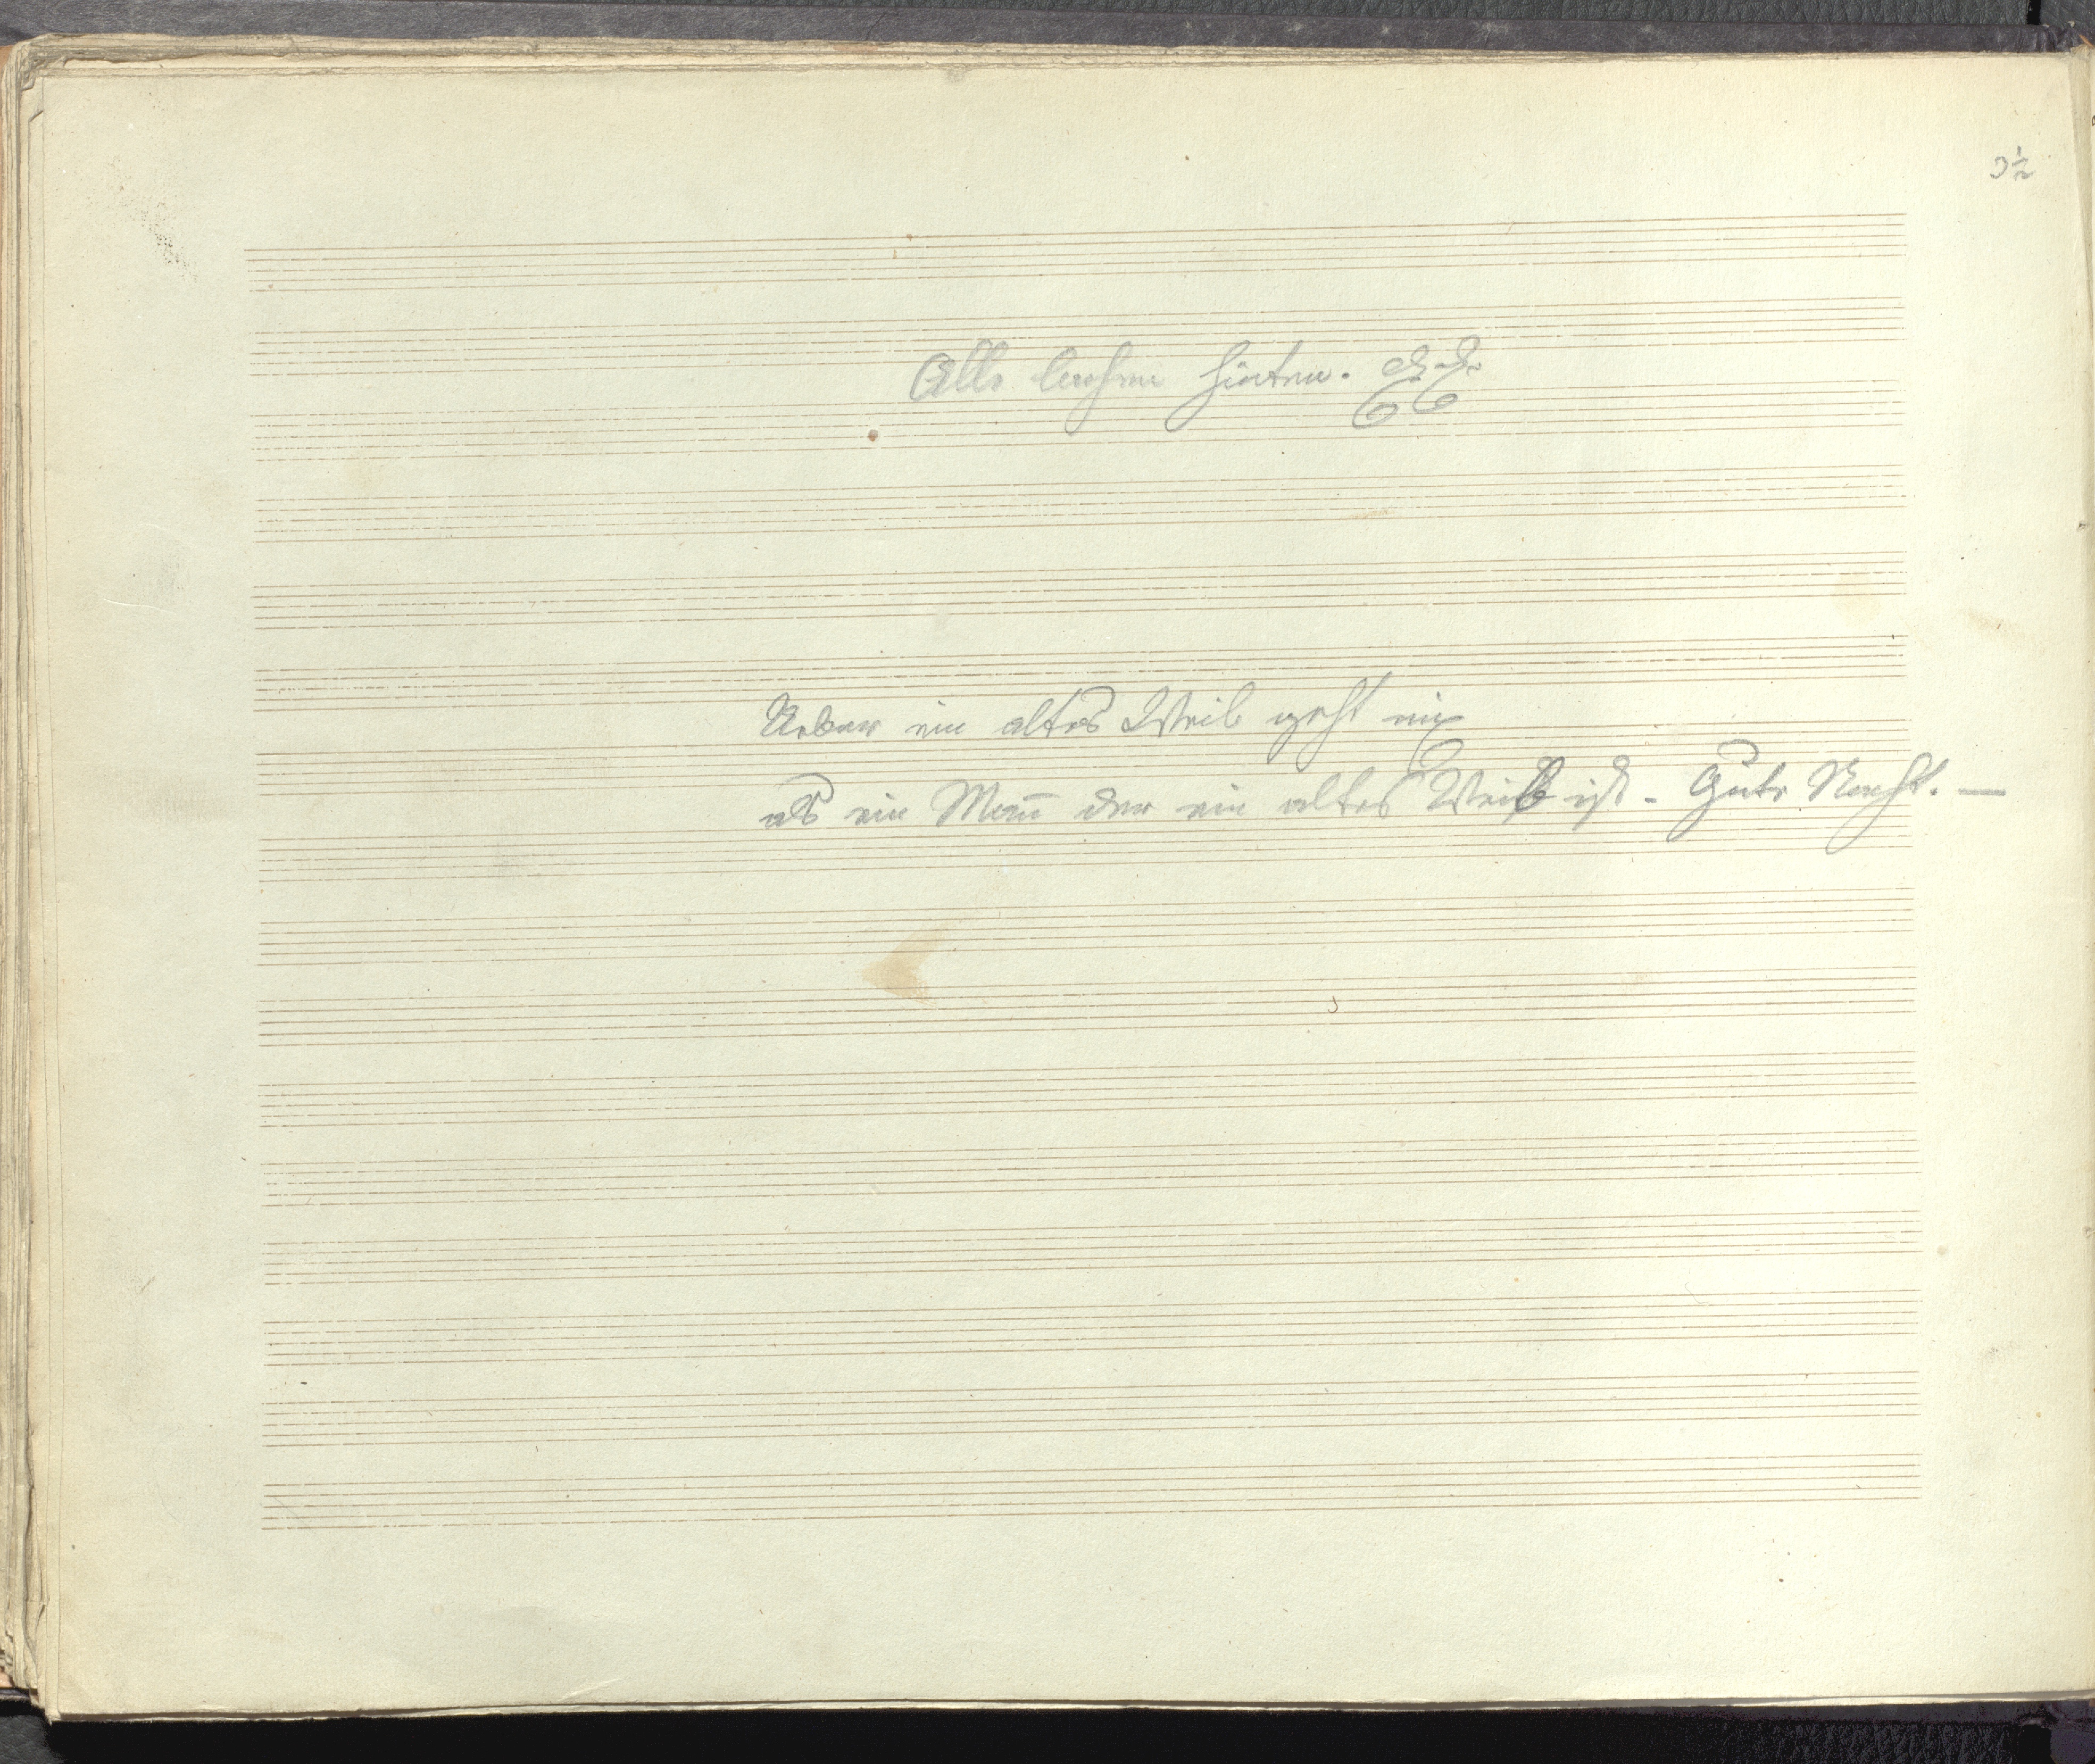 3½
Alle lachen hinten.
Ueber ein altes Weib geht nix
als ein Mañ der ein altes Weib ist - Gute Nacht. —